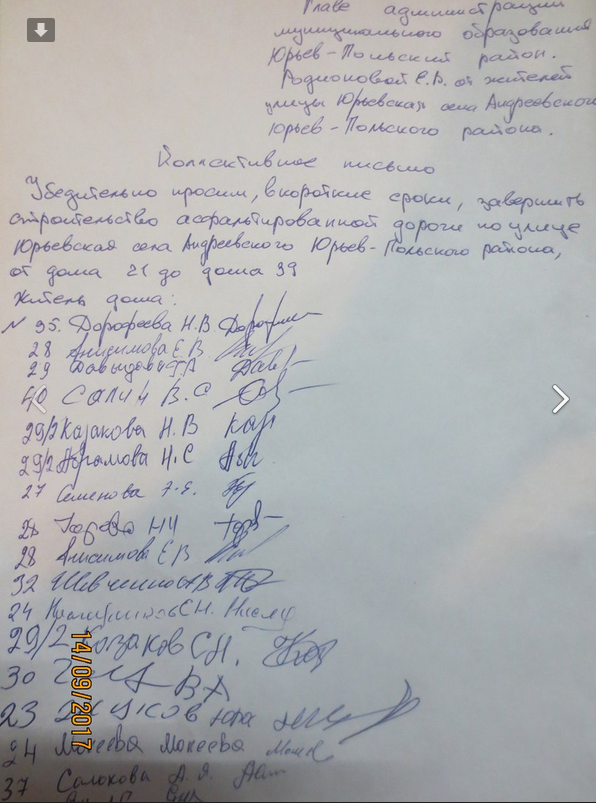 Главе администрации
муниципального образования
Юрьев-Польский район.
Родионовой Е.В. от жителей
улицы Юрьевская села Андреевского
Юрьев-Польского района.
Коллективное письмо
Убедительно просим, в короткие сроки, завершить
строительство асфальтированной дороги по улице
Юрьевская села Андреевского Юрьев-Польского района,
от дома 21 до дома 39
Житель дома:
N 35. Дорофеева Н.В
28 Анисимова Е В
29 Давыдова
40 Салин В. С
29/2 Казакова Н. В
29/2 Абрамова Н. С
27 Семенова
Н И
28 Анисимова Е В
32
24 С Н.
29/2 Казаков С Н.
30
23 Жуков Юра
24 Мокеева Мокеева
37 А. Я.
14/09/2017